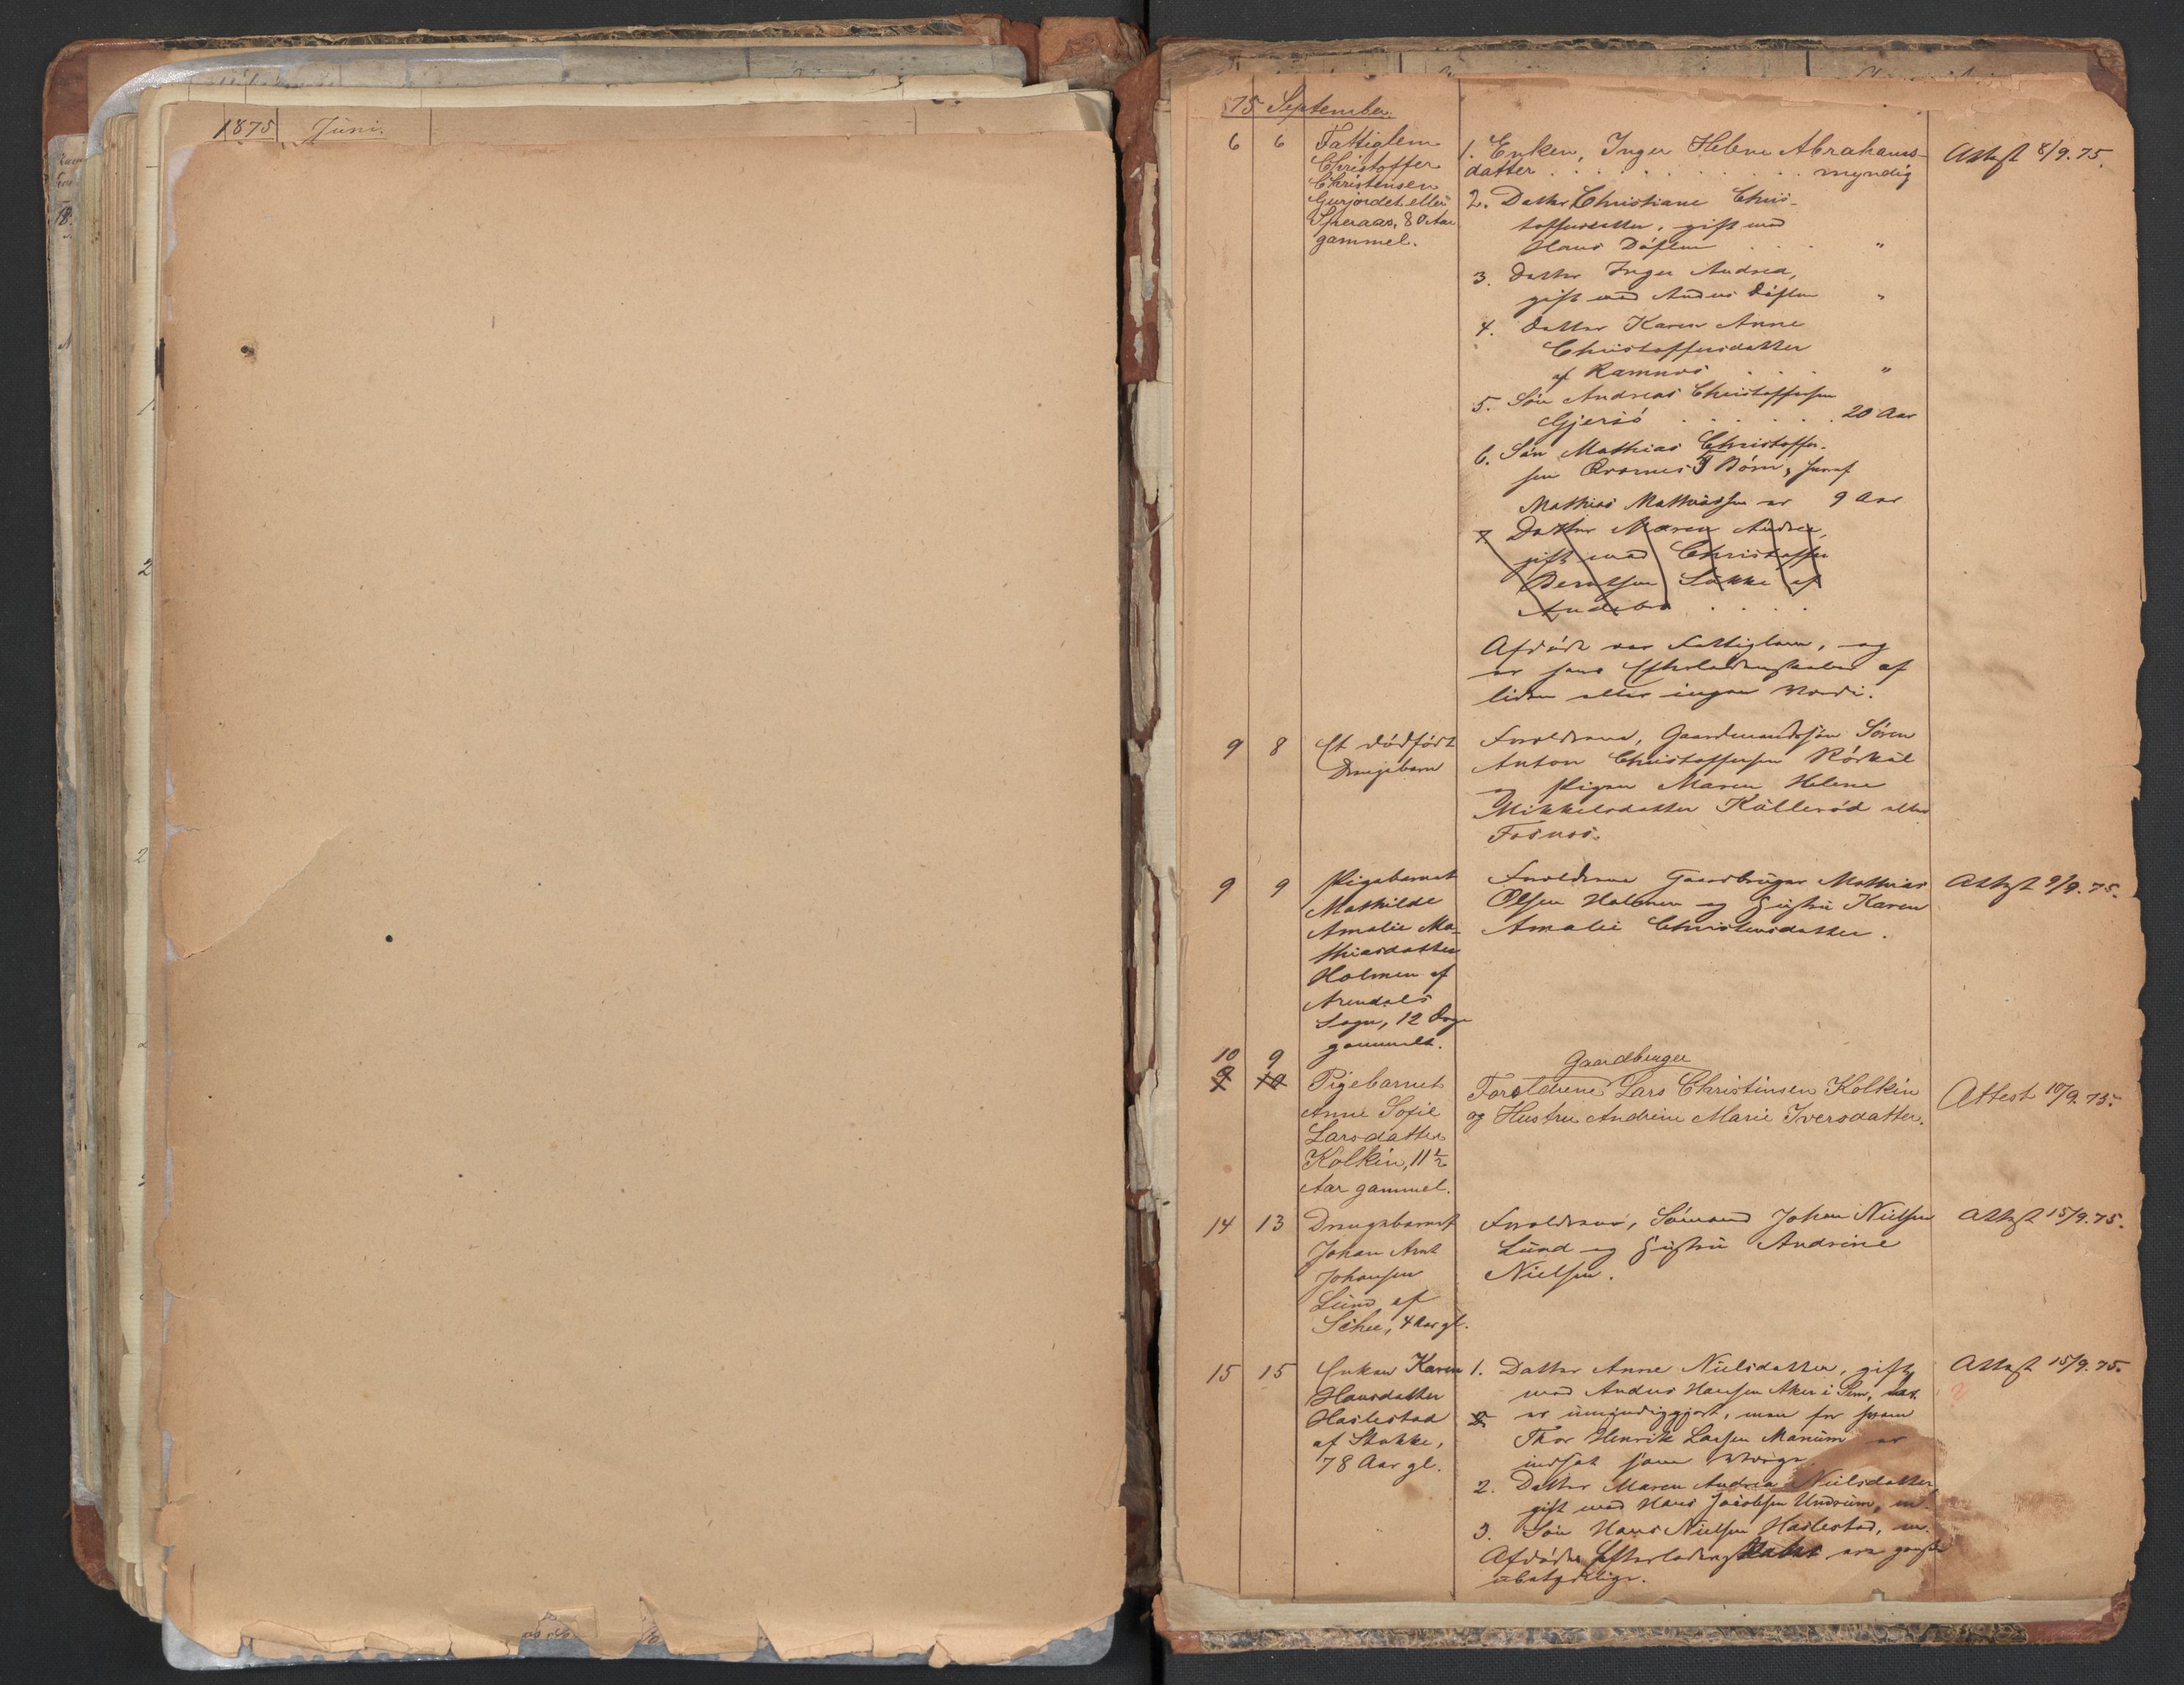 1875 Juni.
75 September
6 6 Fattiglem
Christoffer
Christensen
Gurjordet eller
Speraas, 80 Aar
gammel.
1. Enken, Inger Helene Abrahams-
datter . . . . . . . . myndig
2. Datter Christiane Chris-
toffersdatter, gift med
Hans Döflen . . . "
3. Datter Inger Andrea,
gift med Anders Döflen "
4. Datter Karen Anne
Christoffersdatter
af Ramnæs . . . . "
5. Sön Andreas Christoffersen
Gjersö . . . . . . 20 Aar
6. Sön Mathias Christoffer-
sen Qvarnes Börn, hvoraf
Mathias Mathiassen er 9 Aar
7. Datter Maren Andrea,
gift med Christoffer
Berntsen Løkke af
Andebu . . . .
Afdöde var Fattiglem, og
er hans Efterladenskaber af
liden eller ingen Værdi.
Attest 8/9. 75.
9 8 Et dödfödt
Drengebarn
Forældrene, Gaardmandssön Sören
Anton Christoffersen Rörkål
og Pigen Maren Helene
Mikkelsdatter Källeröd eller
Fosnæs.
9 9 Pigebarnet
Mathilde
Amalie Ma-
thiasdatter
Holmen af
Arendals
Sogn, 12 Dage
gammelt.
Forældrene Gaardbruger Mathias
Olsen Holmen og Hustru Karen
Amalie Christensdatter.
Attest 9/9. 75.
10 9
9 10 Pigebarnet
Anne Sofie
Larsdatter
Kolkin, 11 1/2
Aar gammel.
Gaardbruger
Forældrene Lars Christinsen Kolkin
og Hustru Andrine Marie Iversdatter.
Attest 10/9. 75.
14 13 Drengebarnet
Johan Arnt
Johansen
Lund af
Sehu, 4 Aar gl.
Forældrene, Sömand Johan Nielsen
Lund og Hustru Andrine
Nielsen.
Attest 15/9. 75.
15 15 Enken Karen
Hansdatter
Haslestad
af Stokke,
78 Aar gl.
1. Datter Anne Nielsdatter, gift
med Anders Hansen Aker i Sem,
2. er umyndiggjort, men for hvem
Thor Henrik Larsen Manum er
indsat som Værge.
2. Datter Maren Andrea Nielsdatter,
gift med Hans Jacobsen Undrum, m.
3. Sön Hans Nielsen Haslestad, m.
Afdödes Efterladenskaber ere ganske
ubetydelige.
Attest 15/9. 75.